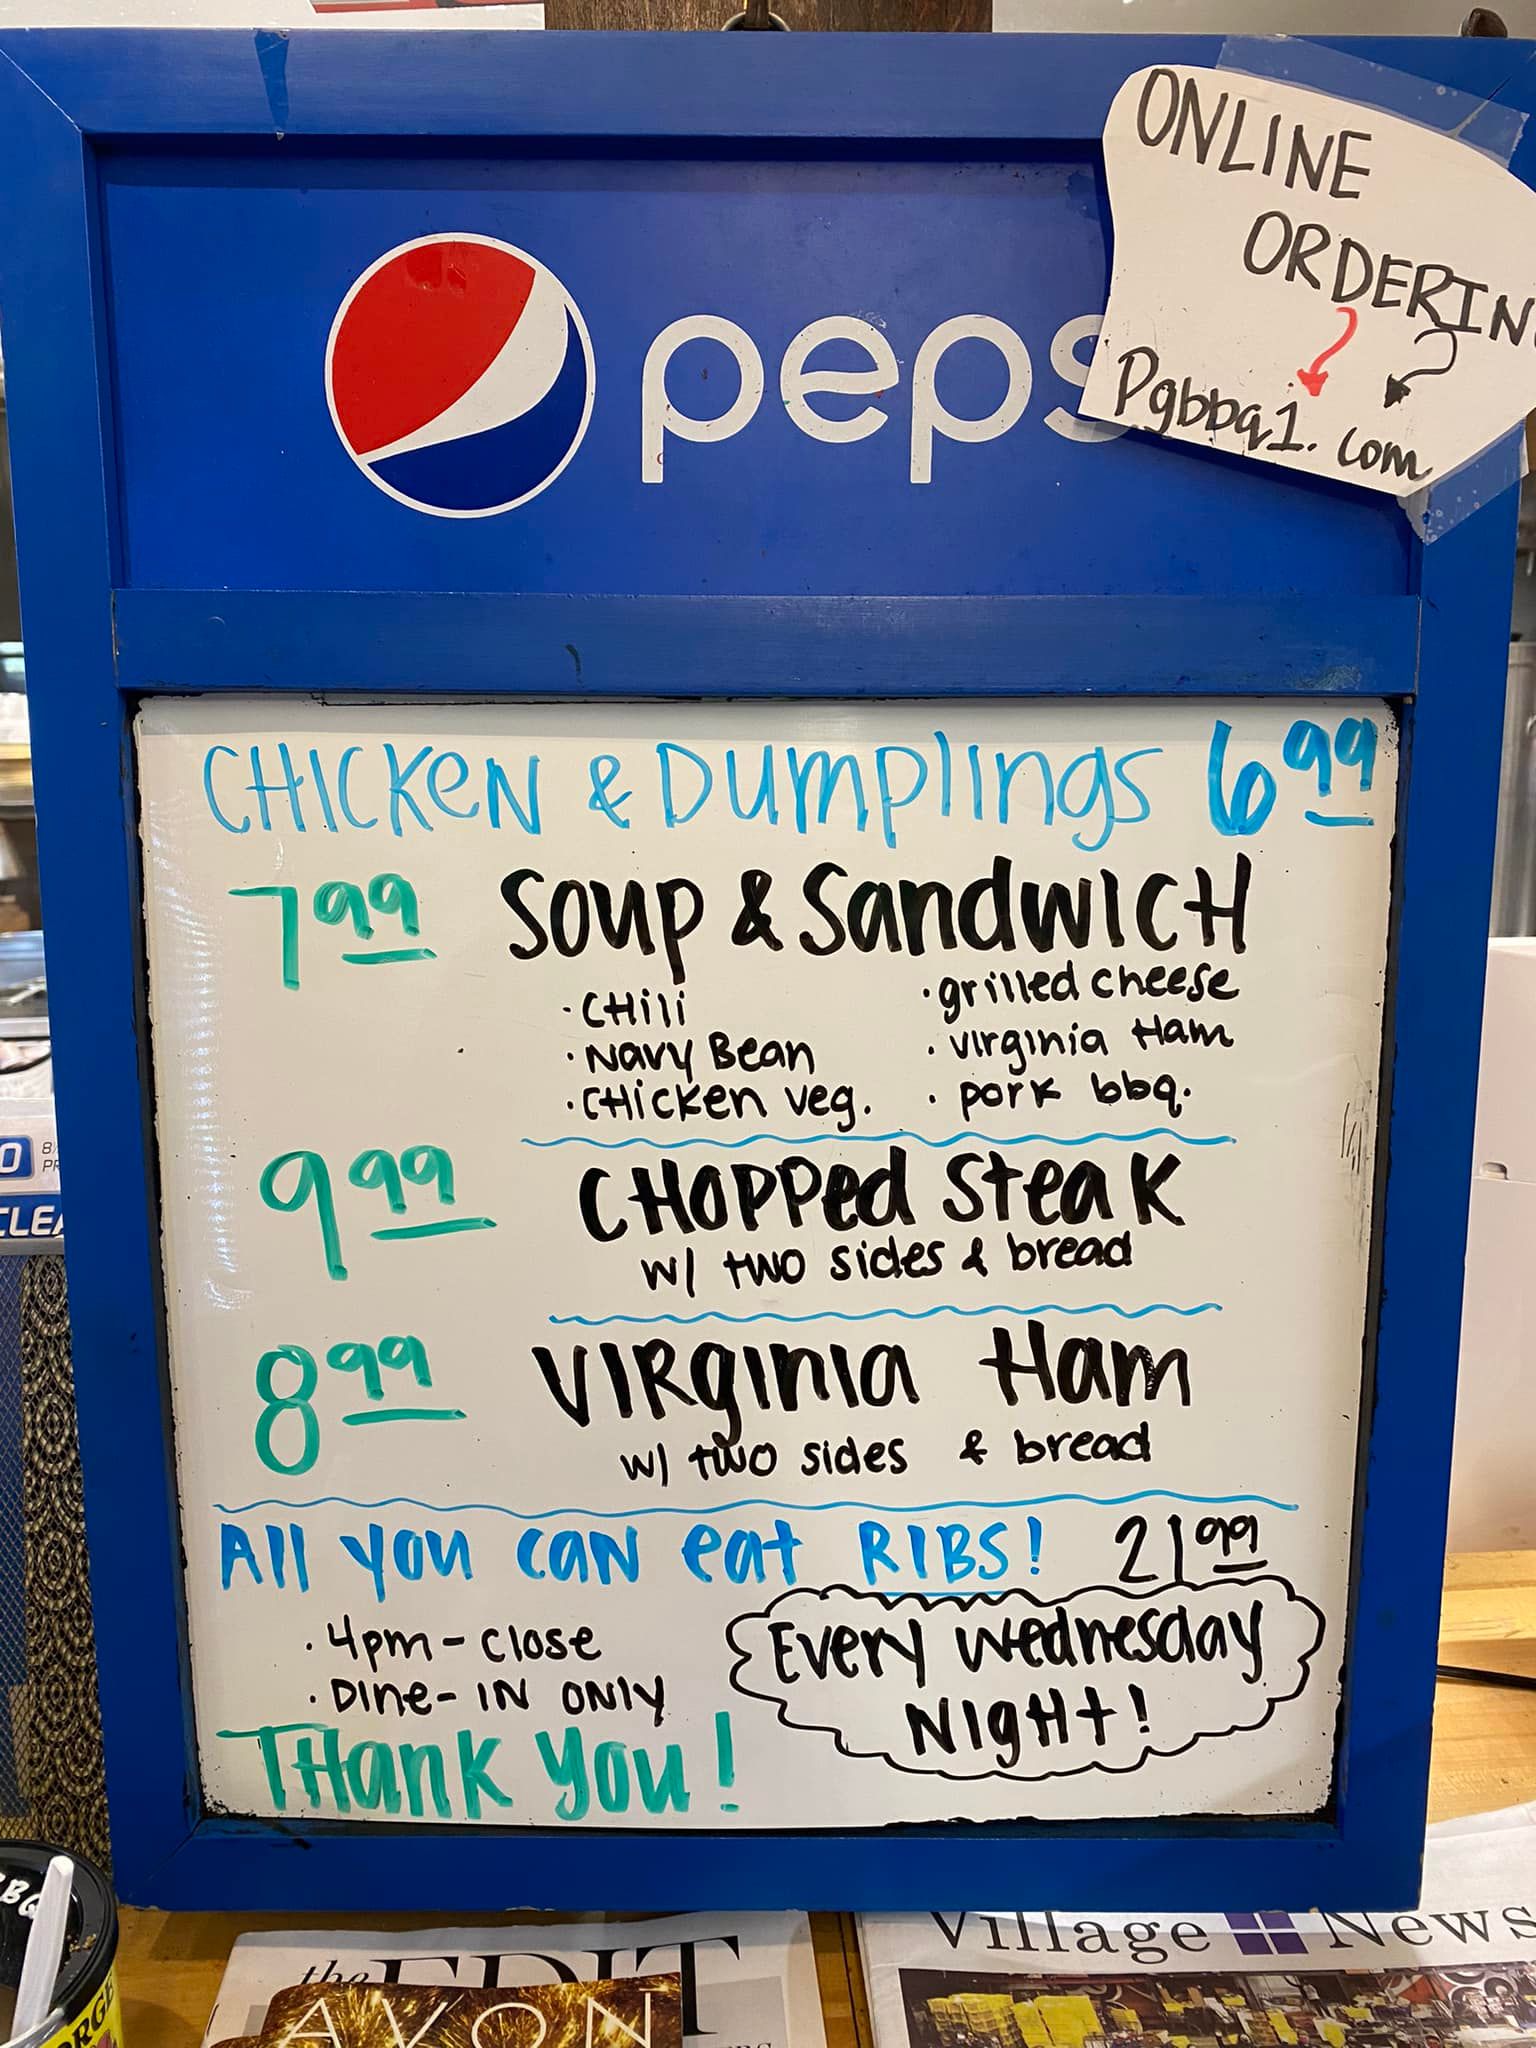 ONLINE
ORDERIN
Pgbbq1.com
peps
CHICKEN & DUMPLINGS 6.99
7.99 SOUP & SANDWICH
· CHili · grilled cheese
· NAVY BEAN · VIRGINIA Ham
· CHICKEN veg. · pork bbq.
9.99 CHOPPED STEAK
w/ two sides & bread
8.99 VIRGINIA Ham
w/ two sides & bread
All you can eat RIBS! 21.99
· 4pm - close
· DINE-IN ONLY
Every Wednesday
NIGHT!
THANK YOU!
the EDIT
AVON
Village News